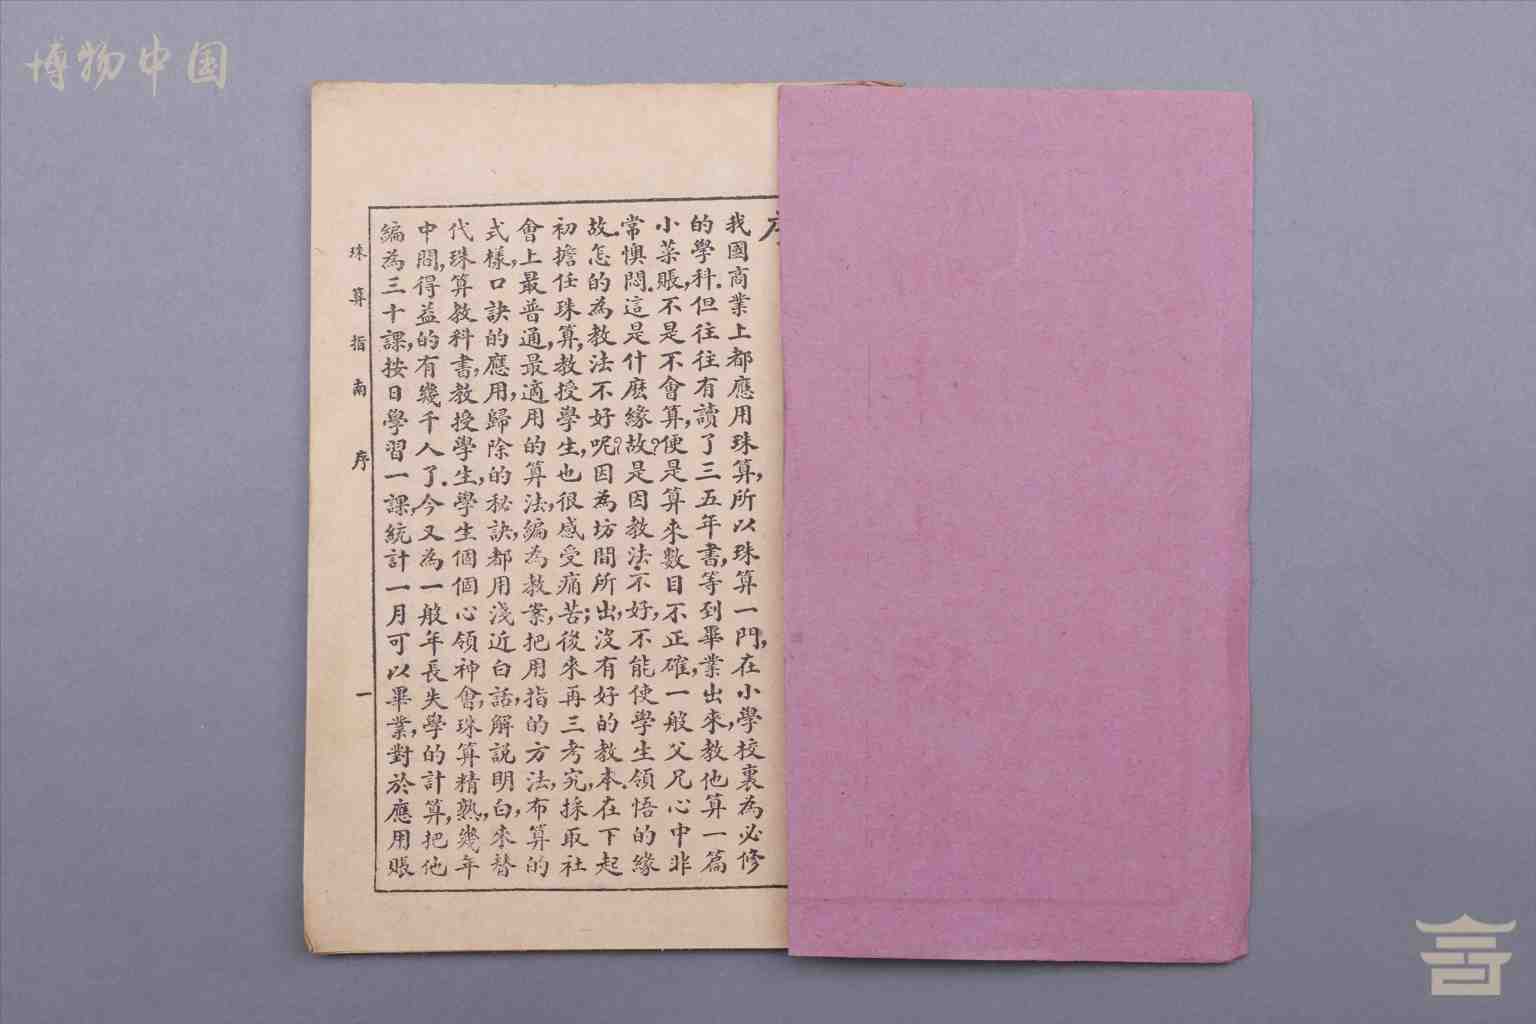 博物中国
序
我國商業上都應用珠算,所以珠算一門,在小學校裏為必修
的學科.但往往有讀了三五年書,等到畢業出來,教他算一篇
小菜賬,不是不會算,便是算來數目不正確,一般父兄心中非
常懊悶.這是什麽緣故?是因教法不好,不能使學生領悟的緣
故.怎的為教法不好呢?因為坊間所出,沒有好的教本.在下起
初擔任珠算,教授學生,也很感受痛苦;後來再三考究,採取社
會上最普通,最適用的算法,編為教案,把用指的方法,布算的
式樣,口訣的應用,歸除的秘訣,都用淺近白話,解說明白,來替
代珠算教科書,教授學生,學生個個心領神會,珠算精熟,幾年
中間,得益的有幾千人了.今又為一般年長失學的計算,把他
編為三十課,按日學習一課,統計一月可以畢業,對於應用賬
珠算指南 序 一